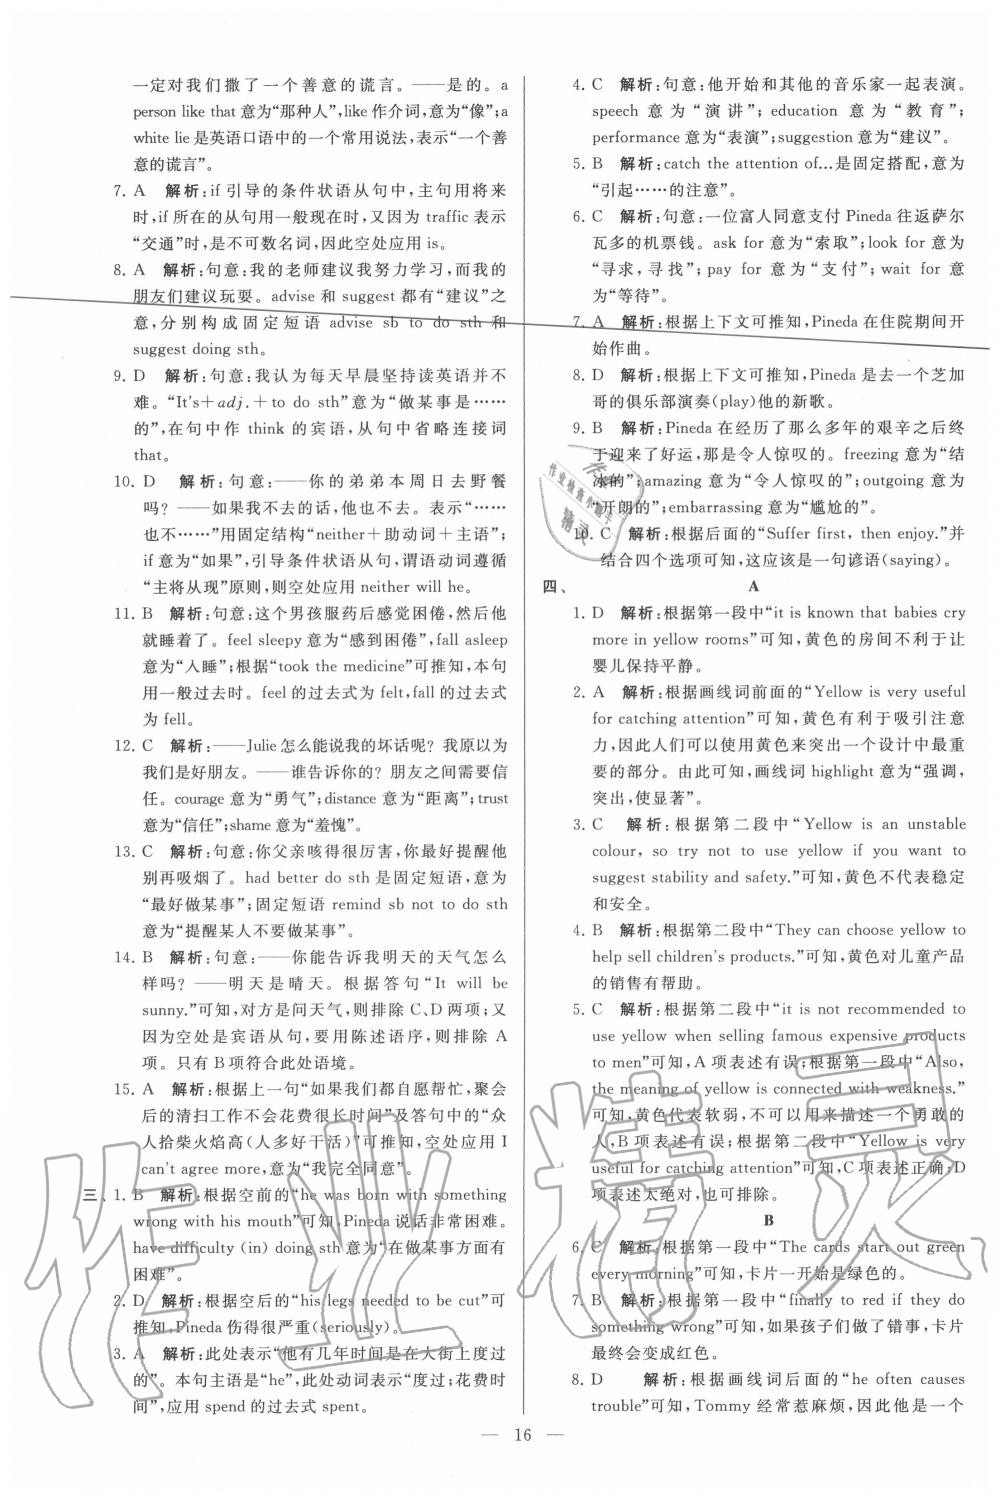 一定对我们撒了一个善意的谎言。——是的。a
person like that 意为“那种人”,like 作介词,意为“像”;a
white lie 是英语口语中的一个常用说法,表示“一个善
意的谎言”。
7. A 解析:if 引导的条件状语从句中,主句用将来
时,if 所在的从句用一般现在时,又因为 traffic 表示
“交通”时,是不可数名词,因此空处应用 is。
8. A 解析:句意:我的老师建议我努力学习,而我的
朋友们建议玩耍。advise 和 suggest 都有“建议”之
意,分别构成固定短语 advise sb to do sth 和
suggest doing sth。
9. D 解析:句意:我认为每天早晨坚持读英语并不
难。“It's+adj.+to do sth”意为“做某事是……
的”,在句中作 think 的宾语,从句中省略连接词
that。
10. D 解析:句意:——你的弟弟本周日去野餐
吗?——如果我不去的话,他也不去。表示“……
也不……”用固定结构“neither+助动词+主语”;
if 意为“如果”,引导条件状语从句,谓语动词遵循
“主将从现”原则,则空处应用 neither will he。
11. B 解析:句意:这个男孩服药后感觉困倦,然后他
就睡着了。feel sleepy 意为“感到困倦”,fall asleep
意为“入睡”;根据“took the medicine”可推知,本句
用一般过去时。feel 的过去式为 felt,fall 的过去式
为 fell。
12. C 解析:——Julie 怎么能说我的坏话呢?我原以为
我们是好朋友。——谁告诉你的?朋友之间需要信
任。courage 意为“勇气”;distance 意为“距离”;trust
意为“信任”;shame 意为“羞愧”。
13. C 解析:句意:你父亲咳得很厉害,你最好提醒他
别再吸烟了。had better do sth 是固定短语,意为
“最好做某事”;固定短语 remind sb not to do sth
意为“提醒某人不要做某事”。
14. B 解析:句意:——你能告诉我明天的天气怎么
样吗?——明天是晴天。根据答句“It will be
sunny.”可知,对方是问天气,则排除 C、D 两项;又
因为空处是宾语从句,要用陈述语序,则排除 A
项。只有 B 项符合此处语境。
15. A 解析:根据上一句“如果我们都自愿帮忙,聚会
后的清扫工作不会花费很长时间”及答句中的“众
人拾柴火焰高(人多好干活)”可推知,空处应用 I
can't agree more,意为“我完全同意”。
三、1. B 解析:根据空前的“he was born with something
wrong with his mouth”可知,Pineda 说话非常困难。
have difficulty (in) doing sth 意为“在做某事方面有
困难”。
2. D 解析:根据空后的“his legs needed to be cut”可
推知,Pineda 伤得很严重(seriously)。
3. A 解析:此处表示“他有几年时间是在大街上度过
的”。本句主语是“he”,此处动词表示“度过;花费时
间”,应用 spend 的过去式 spent。
4. C 解析:句意:他开始和其他的音乐家一起表演。
speech 意为“演讲”;education 意为“教育”;
performance 意为“表演”;suggestion 意为“建议”。
5. B 解析:catch the attention of...是固定搭配,意为
“引起……的注意”。
6. C 解析:句意:一位富人同意支付 Pineda 往返萨尔
瓦多的机票钱。ask for 意为“索取”;look for 意为
“寻求,寻找”;pay for 意为“支付”;wait for 意
为“等待”。
7. A 解析:根据上下文可推知,Pineda 在住院期间开
始作曲。
8. D 解析:根据上下文可推知,Pineda 是去一个芝加
哥的俱乐部演奏(play)他的新歌。
9. B 解析:Pineda 在经历了那么多年的艰辛之后终
于迎来了好运,那是令人惊叹的。freezing 意为“结
冰的”;amazing 意为“令人惊叹的”;outgoing 意为
“开朗的”;embarrassing 意为“尴尬的”。
10. C 解析:根据后面的“Suffer first, then enjoy.”并
结合四个选项可知,这应该是一句谚语(saying)。
四、 A
1. D 解析:根据第一段中“it is known that babies cry
more in yellow rooms”可知,黄色的房间不利于让
婴儿保持平静。
2. A 解析:根据画线词前面的“Yellow is very useful
for catching attention”可知,黄色有利于吸引注意
力,因此人们可以使用黄色来突出一个设计中最重
要的部分。由此可知,画线词 highlight 意为“强调,
突出,使显著”。
3. C 解析:根据第二段中“Yellow is an unstable
colour, so try not to use yellow if you want to
suggest stability and safety.”可知,黄色不代表稳定
和安全。
4. B 解析:根据第二段中“They can choose yellow to
help sell children's products.”可知,黄色对儿童产品
的销售有帮助。
5. C 解析:根据第二段中“it is not recommended to
use yellow when selling famous expensive products
to men”可知,A 项表述有误;根据第一段中“Also,
the meaning of yellow is connected with weakness.”
可知,黄色代表软弱,不可以用来描述一个勇敢的
人,B 项表述有误;根据第二段中“Yellow is very
useful for catching attention”可知,C 项表述正确;D
项表述太绝对,也可排除。
B
6. C 解析:根据第一段中“The cards start out green
every morning”可知,卡片一开始是绿色的。
7. B 解析:根据第一段中“finally to red if they do
something wrong”可知,如果孩子们做了错事,卡片
最终会变成红色。
8. D 解析:根据画线词后面的“he often causes
trouble”可知,Tommy 经常惹麻烦,因此他是一个
— 16 —
作业精灵
作业检查小助手
精灵